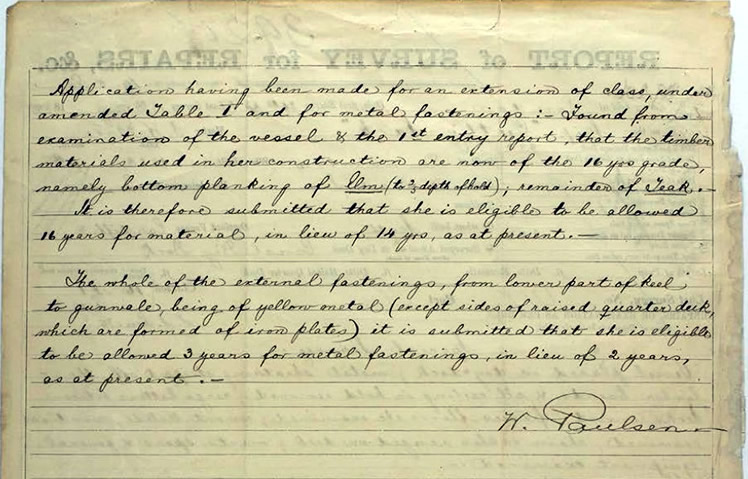 REPORT of SURVEY for REPAIRS, &c.
Application having been made for an extension of class, under
amended Table I and for metal fastenings :- Found from
examination of the vessel & the 1st entry report, that the timber
materials used in her construction are now of the 16 yrs grade,
namely bottom planking of Elm (to ⅔ depth of hold); remainder of Teak. -
It is therefore submitted that she is eligible to be allowed
16 years for material, in lieu of 14 yrs, as at present. -
The whole of the external fastenings, from lower part of keel
to gunwale, being of yellow metal (except sides of raised quarter deck,
which are formed of iron plates) it is submitted that she is eligible
to be allowed 3 years for metal fastenings, in lieu of 2 years,
as at present. -
W. Paulsen